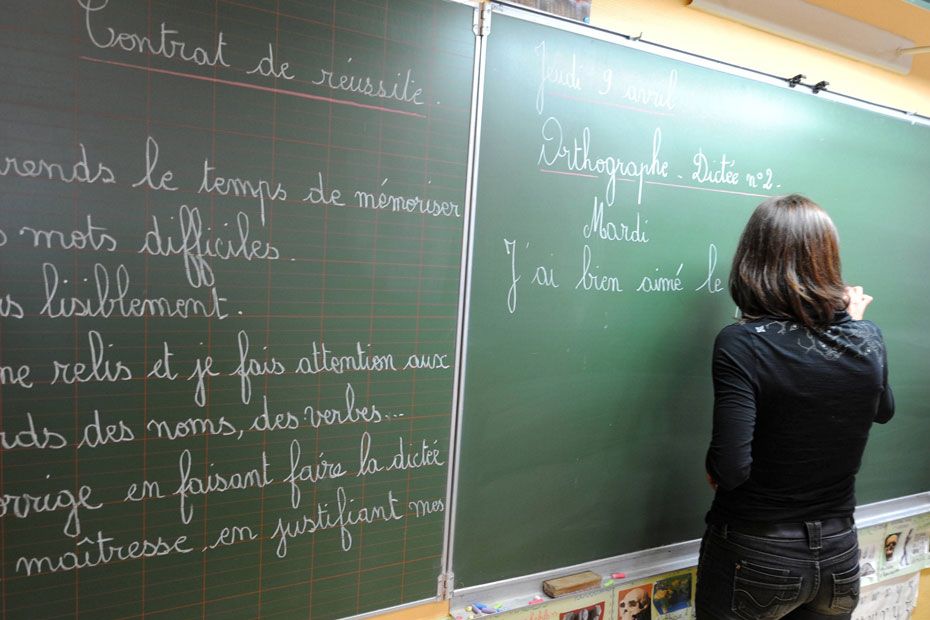 Contrat de réussite.
rends le temps de mémoriser
s mots difficiles.
is lisiblement.
me relis et je fais attention aux
rds des noms, des verbes...
orrige en faisant faire la dictée
maîtresse, en justifiant mes
Jeudi 9 avril
Orthographe - Dictée n°2.
Mardi
J'ai bien aimé le